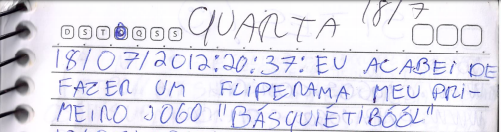 QUARTA 18/7
D S T Q Q S S
18/07/2012:20:37: EU ACABEI DE
FAZER UM FLIPERAMA MEU PRI-
MEIRO JOGO "BÁSQUIÉTIBÓÓL"